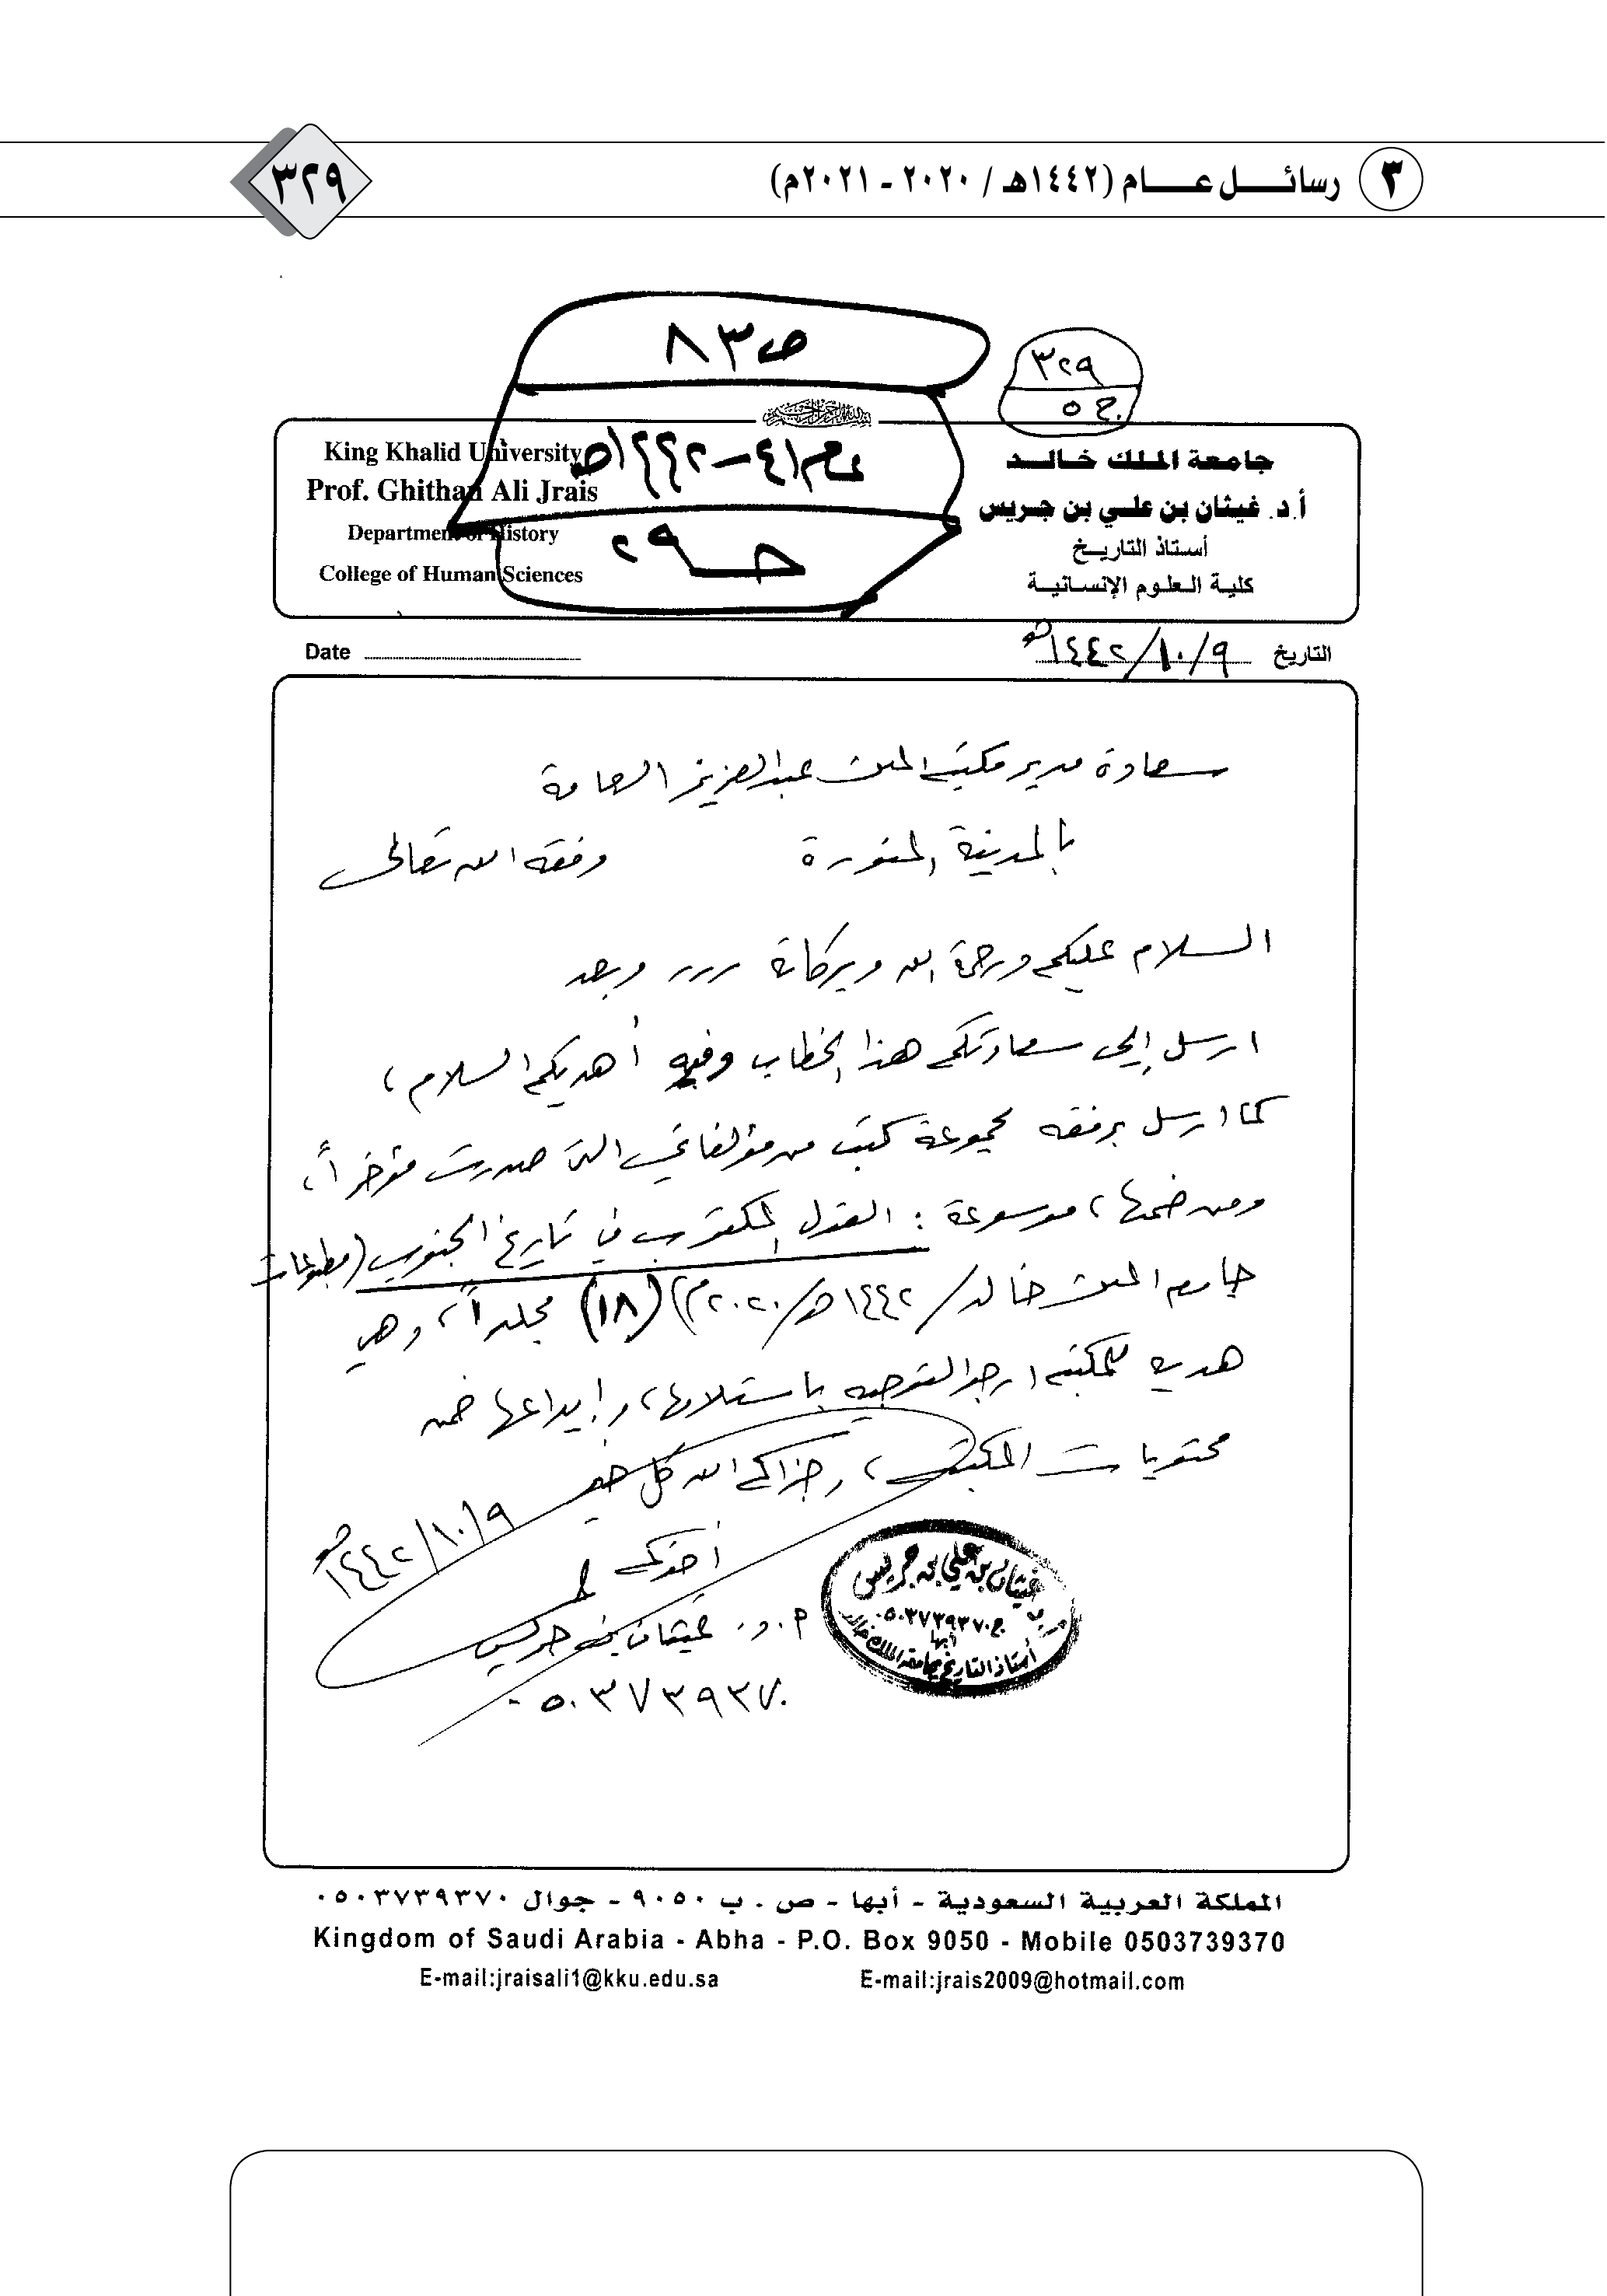 ٣ رسائل عام (١٤٤٢هـ / ٢٠٢٠ - ٢٠٢١م)
٣٢٩
ص ٨٣
٣٢٩
ج ٥
جامعة الملك خالد
أ.د. غيثان بن علي بن جريس
أستاذ التاريخ
كلية العلوم الإنسانية
King Khalid University
Prof. Ghithan Ali Jrais
Department of History
College of Human Sciences
التاريخ ١٤٤٢/١٠/٩هـ
Date
سعادة مدير مكتبة الملك عبدالعزيز العامة
بالمدينة المنورة وفقه الله تعالى
السلام عليكم ورحمة الله وبركاته ... وبعد
ارسل إلى سعادتكم هذا الخطاب وفيه أهديكم السلام،
كما ارسل برفقه مجموعة كتب من مؤلفاتي التي صدرت مؤخراً،
ومن ضمنها، موسوعة : القول المكتوب في تاريخ الجنوب (مطبوعات
جامعة الملك خالد/ ١٤٤٢هـ/ ٢٠٢٠م) (١٨) مجلداً، وهي
هدية للمكتبة ارجو التوجيه باستلامها، وإيداعها ضمن
محتويات المكتبة، وجزاكم الله كل خير
١٤٤٢/١٠/٩هـ
أخوكم
أ.د. غيثان بن جريس
٠٥٠٣٧٣٩٣٧٠
غيثان بن علي بن جريس
ج ٠٥٠٣٧٣٩٣٧٠
أبها
أستاذ التاريخ بجامعة الملك خالد
المملكة العربية السعودية - أبها - ص . ب ٩٠٥٠ - جوال ٠٥٠٣٧٣٩٣٧٠
Kingdom of Saudi Arabia - Abha - P.O. Box 9050 - Mobile 0503739370
E-mail:jraisali1@kku.edu.sa E-mail:jrais2009@hotmail.com